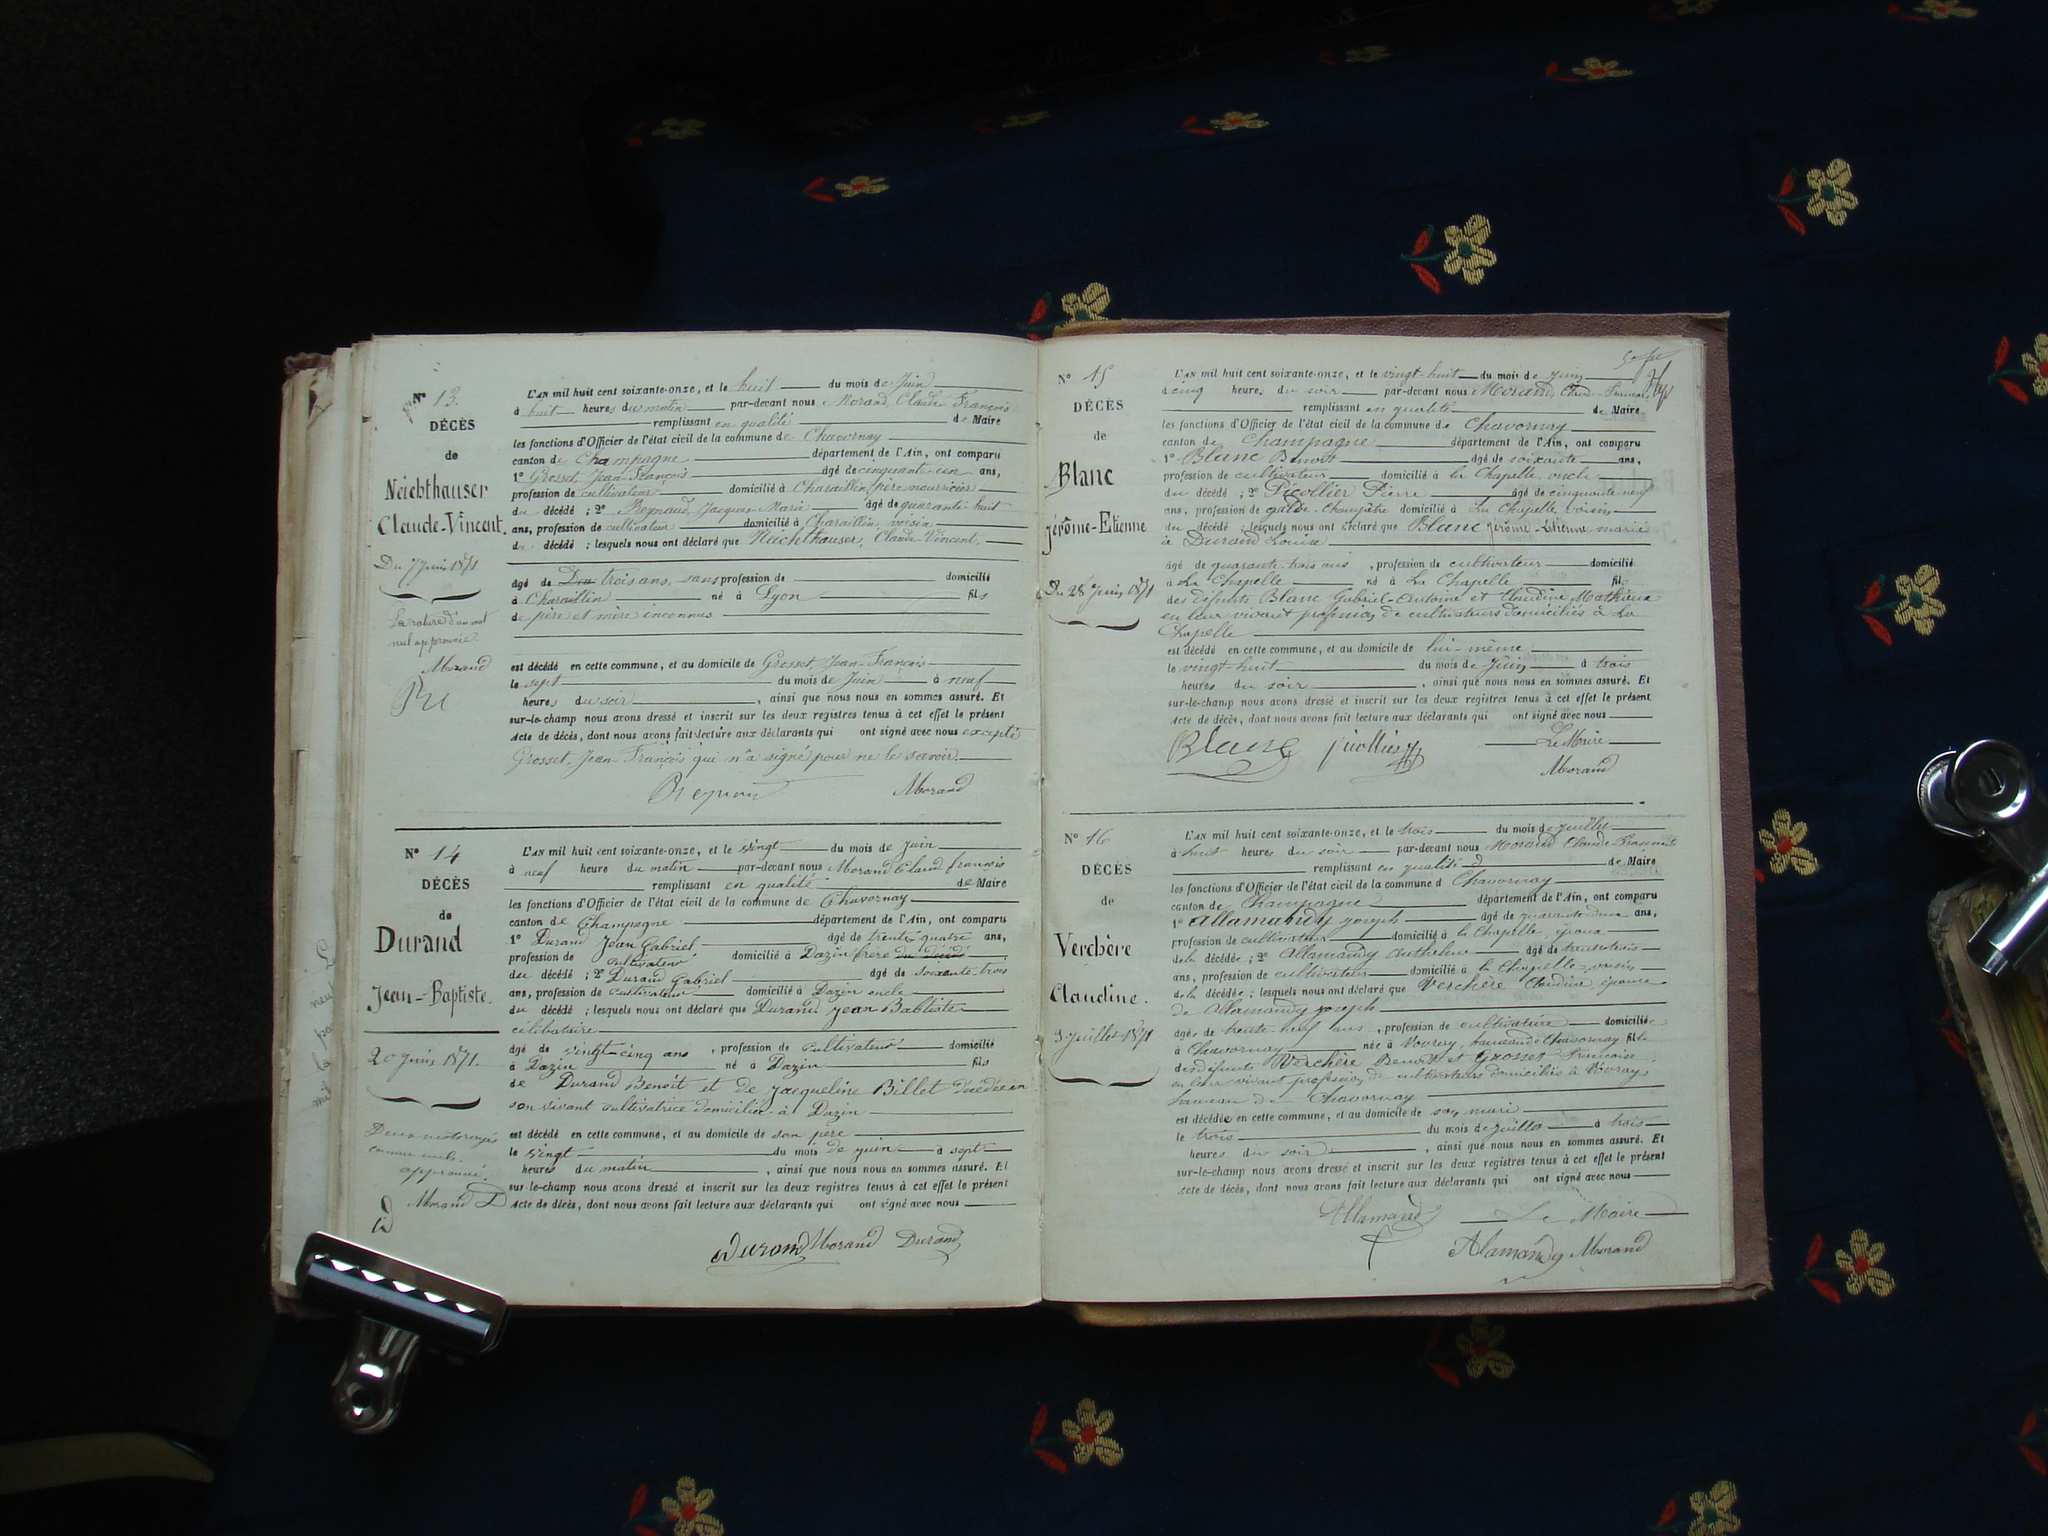 N° 13.
DÉCÈS
de
Neichthauser
Claude-Vincent.
Du 7 Juin 1871
La rature d'un mot
nul approuvée
Morand
L'AN mil huit cent soixante-onze, et le huit du mois de Juin
à huit heures du matin par-devant nous Morand, Claude François
remplissant en qualité de Maire
les fonctions d'Officier de l'état civil de la commune de Chavornay
canton de Champagne département de l'Ain, ont comparu
1° Grosset Jean-François âgé de cinquante un ans,
profession de cultivateur domicilié à Charaillin, père nourricier
du décédé ; 2° Reynaud, Jacques Marie âgé de quarante huit
ans, profession de cultivateur domicilié à Charaillin, voisin
du décédé ; lesquels nous ont déclaré que Neichthauser, Claude-Vincent,
âgé de trois ans, sans profession de domicilié
à Charaillin né à Lyon fils
de père et mère inconnus
est décédé en cette commune, et au domicile de Grosset Jean-François
le sept du mois de Juin à neuf
heures du soir, ainsi que nous nous en sommes assuré. Et
sur-le-champ nous avons dressé et inscrit sur les deux registres tenus à cet effet le présent
acte de décès, dont nous avons fait lecture aux déclarants qui ont signé avec nous excepté
Grosset, Jean François qui n'a signé pour ne le savoir.
Morand
N° 14
DÉCÈS
de
Durand
Jean-Baptiste.
20 Juin 1871.
Deux mots rayés
comme nuls
approuvé
Morand D
L'AN mil huit cent soixante-onze, et le vingt du mois de juin
à neuf heure du matin par-devant nous Morand Claud francois
remplissant en qualité de Maire
les fonctions d'Officier de l'état civil de la commune de Chavornay
canton de Champagne département de l'Ain, ont comparu
1° Durand Jean Gabriel âgé de trente quatre ans,
profession de cultivateur domicilié à Dazin frère du décédé
du décédé ; 2° Durand Gabriel âgé de soixante-trois
ans, profession de cultivateur domicilié à Dazin oncle
du décédé ; lesquels nous ont déclaré que Durand Jean Babtiste
célibataire
âgé de vingt-cinq ans, profession de cultivateur domicilié
à Dazin né à Dazin fils
de Durand Benoît et de Jacqueline Billet décédée en
son vivant cultivatrice domiciliée à Dazin
est décédé en cette commune, et au domicile de son père
le vingt du mois de juin à sept
heures du matin, ainsi que nous nous en sommes assuré. Et
sur-le-champ nous avons dressé et inscrit sur les deux registres tenus à cet effet le présent
acte de décès, dont nous avons fait lecture aux déclarants qui ont signé avec nous
Durand Morand Durand
N° 15
DÉCÈS
de
Blanc
Jérôme-Etienne
Du 28 Juin 1871
L'AN mil huit cent soixante-onze, et le vingt huit du mois de Juin
à cinq heures du soir par-devant nous Morand, Claude-Francois,
remplissant en qualité de Maire
les fonctions d'Officier de l'état civil de la commune de Chavornay
canton de Champagne département de l'Ain, ont comparu
1° Blanc Benoit âgé de soixante ans,
profession de cultivateur domicilié à la Chapelle, oncle
du décédé ; 2° Picollier Pierre âgé de cinquante neuf
ans, profession de garde-champêtre domicilié à La Chapelle, voisin
du décédé ; lesquels nous ont déclaré que Blanc Jérôme-Etienne marié
à Durand Louise
âgé de quarante-trois ans, profession de cultivateur domicilié
à La Chapelle né à La Chapelle fils
des défunts Blanc Gabriel-Antoine et Claudine Mathieu
en leur vivant profession de cultivateurs domiciliés à La
Chapelle
est décédé en cette commune, et au domicile de lui-même
le vingt-huit du mois de Juin à trois
heures du soir, ainsi que nous nous en sommes assuré. Et
sur-le-champ nous avons dressé et inscrit sur les deux registres tenus à cet effet le présent
acte de décès, dont nous avons fait lecture aux déclarants qui ont signé avec nous
Blanc Le Maire
Morand
N° 16
DÉCÈS
de
Verchère
Claudine.
3 Juillet 1871
L'AN mil huit cent soixante-onze, et le trois du mois de juillet
à huit heures du soir par-devant nous Morand Claude
remplissant en qualité de Maire
les fonctions d'Officier de l'état civil de la commune d Chavornay
canton de Champagne département de l'Ain, ont comparu
1° Allamandy Joseph âgé de quarante deux ans,
profession de cultivateur domicilié à la Chapelle, époux
de la décédée ; 2° Allamandy Anthelme âgé de trente trois
ans, profession de cultivateur domicilié à la Chapelle voisin
de la décédée ; lesquels nous ont déclaré que Verchère Claudine, épouse
de Allamandy Joseph
âgée de trente-neuf ans, profession de cultivatrice domiciliée
à Chavornay née à Vovray, hameau de Chavornay fille
des défunts Verchère Benoît et Grosset Françoise
en leur vivant profession de cultivateurs domiciliés à Vovray
hameau de Chavornay
est décédée en cette commune, et au domicile de son mari
le trois du mois de juillet à trois
heures du soir, ainsi que nous nous en sommes assuré. Et
sur-le-champ nous avons dressé et inscrit sur les deux registres tenus à cet effet le présent
acte de décès, dont nous avons fait lecture aux déclarants qui ont signé avec nous
Allamand Le Maire
Alamandy Morand